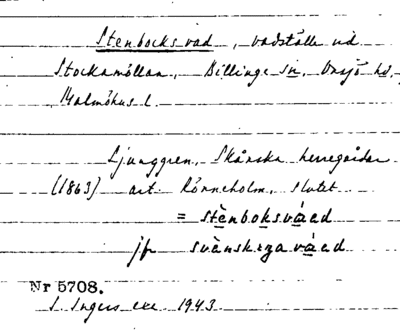 Stenbocks vad, vadställe vid
Stockamöllan, Billinge sn, Onsjö hd,
Malmöhus l.
Ljunggren, Skånska herregårdar
(1863) art. Rönneholm, slutet
= stènboksváed
jfr svànskega váed
Nr 5708.
I. Ingers exc 1943.